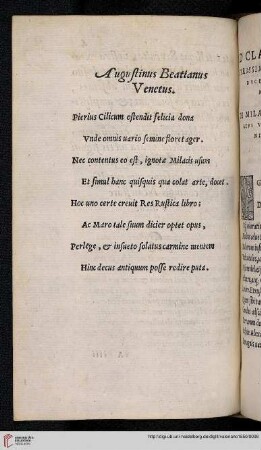 Augustinus Beatianus
Venetus.
Pierius Cilicum ostendit felicia dona
Vnde omnis uario semine floret ager.
Nec contentus eo est, ignotæ Milacis usum
Et simul hanc quisquis qua colat arte, docet.
Hoc uno certe creuit Res Rustica libro;
Ac Maro tale suum dicier optet opus,
Perlege, et insueto solatus carmine mentem
Hinc decus antiquum posse redire puta.